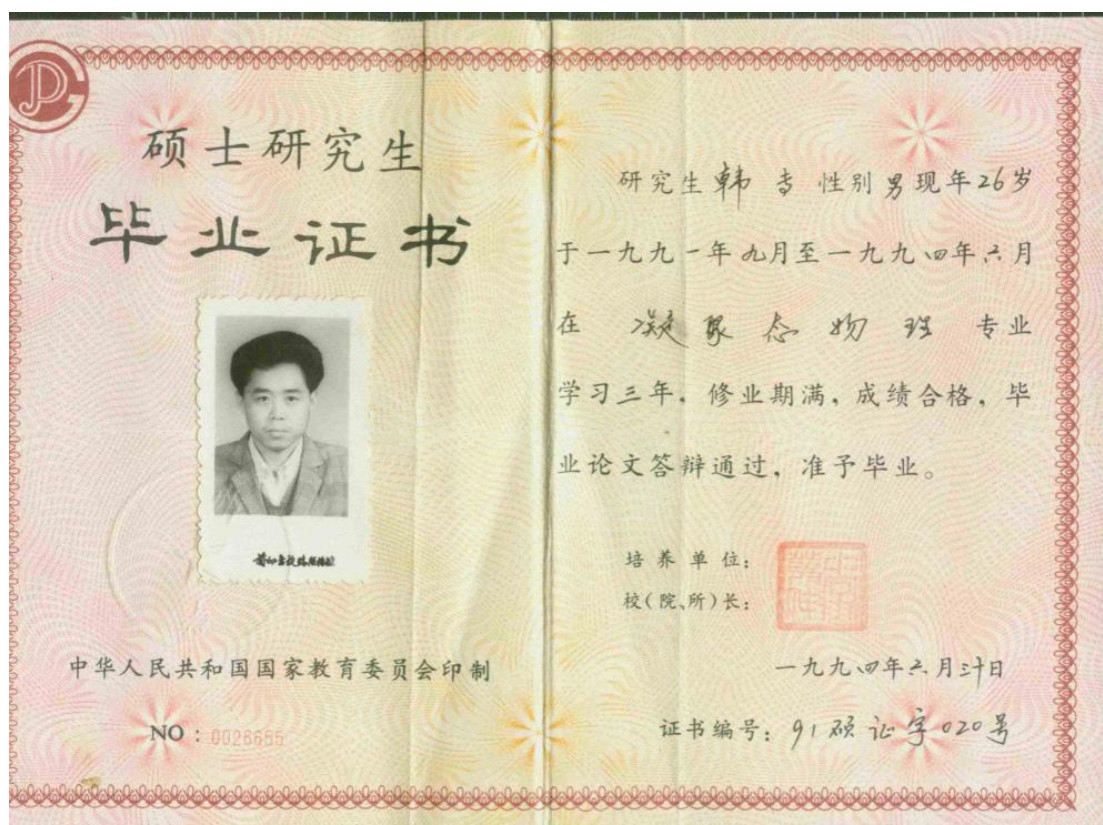 硕士研究生
毕业证书
中华人民共和国国家教育委员会印制
NO：0028655
研究生韩 性别男现年26岁
于一九九一年九月至一九九四年六月
在凝聚态物理专业
学习三年，修业期满，成绩合格，毕
业论文答辩通过，准予毕业。
培养单位：
校（院、所）长：
一九九四年六月三十日
证书编号：91硕证字020号